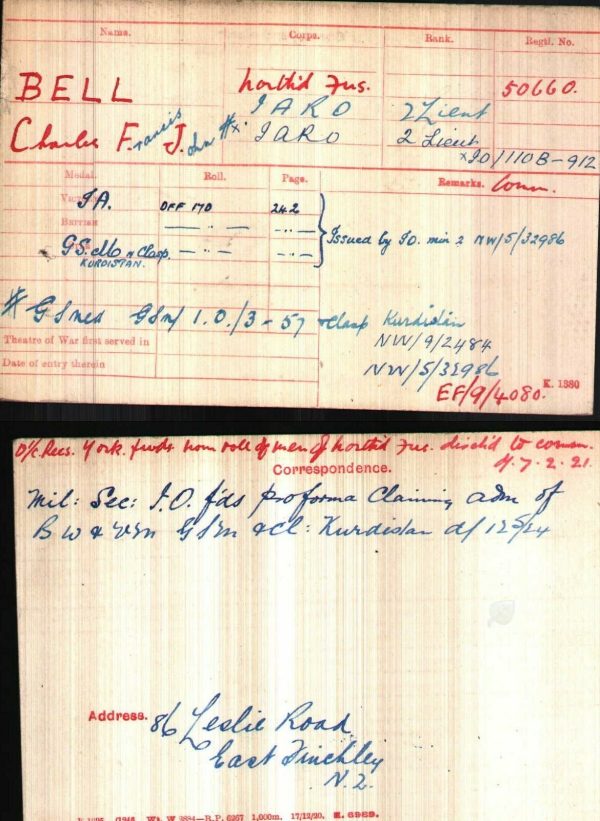 Name. Corps. Rank. Regtl. No.
BELL Northd Fus. 50660.
Charles F.rancis J.ohn #x. IARO 2 Lieut
IARO 2 Lieut
x IO/1108-912
Medal. Roll. Page. Remarks. Comm.
Victory IA. OFF 170 242
British — " — — " —
GS. Mo & Clasp. — " — — " —
KURDISTAN.
Issued by IO. min 2 NW/5/32986
# GS Med GSM/1.0./3-57 & clasp Kurdistan
Theatre of War first served in NW/9/2484
Date of entry therein NW/5/32986
EF/9/4080. K. 1380
O/c Recs. York. fwds nom roll of men of Northd Fus. disch'd to comm.
d/ 7.2.21.
Correspondence.
Mil: Sec: I.O. f'ds proforma Claiming adm of
B W & Vm GSM & Cl: Kurdistan d/ 12 5/24
Address. 86 Leslie Road
East Finchley
N.2.
W. 3884—R.P. 6267 1,000m. 17/12/20. E. 6989.